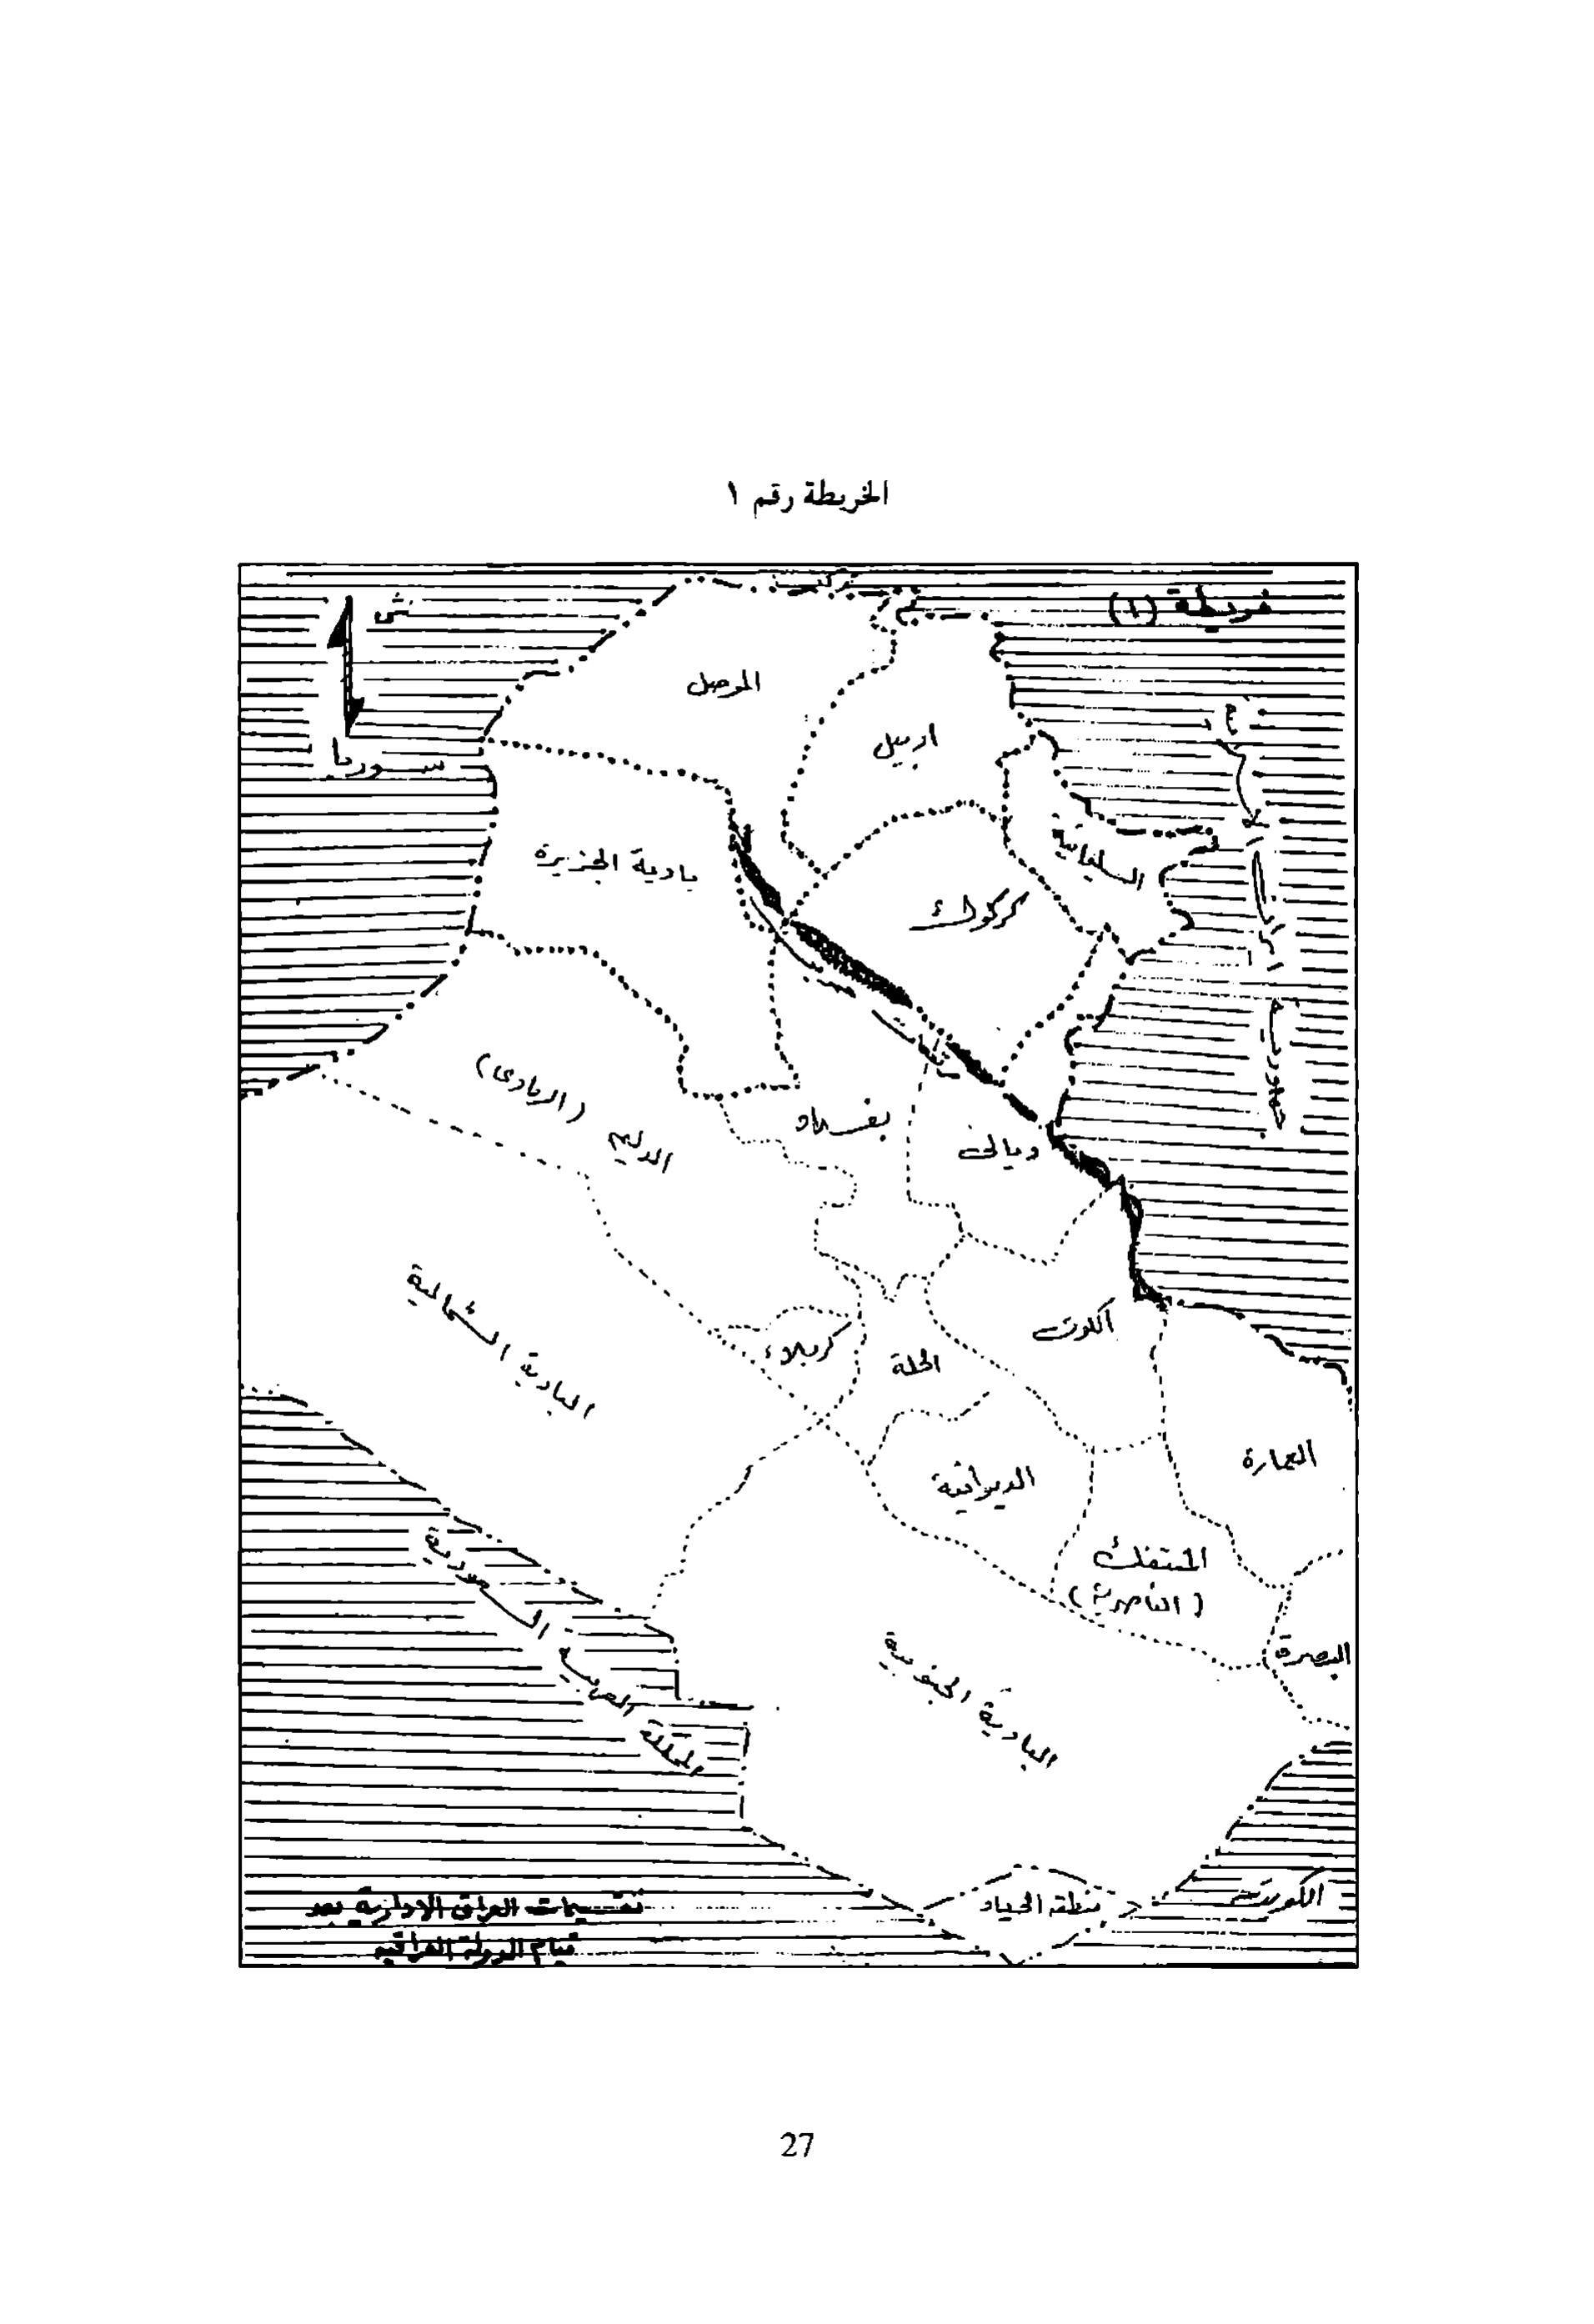 الخريطة رقم ١
خريطة (١)
ش
تركيا
سوريا
الموصل
اربيل
السليمانية
بادية الجزيرة
كركوك
الدليم (الرمادى)
بغداد
ديالى
البادية الشمالية
كربلاء
الحلة
الكوت
العمارة
الديوانية
المنتفك
(الناصرية)
البصرة
البادية الجنوبية
المملكة العربية السعودية
منطقة الحياد
الكويت
تقسيمات العراق الادارية بعد
قيام الدولة العراقية
27